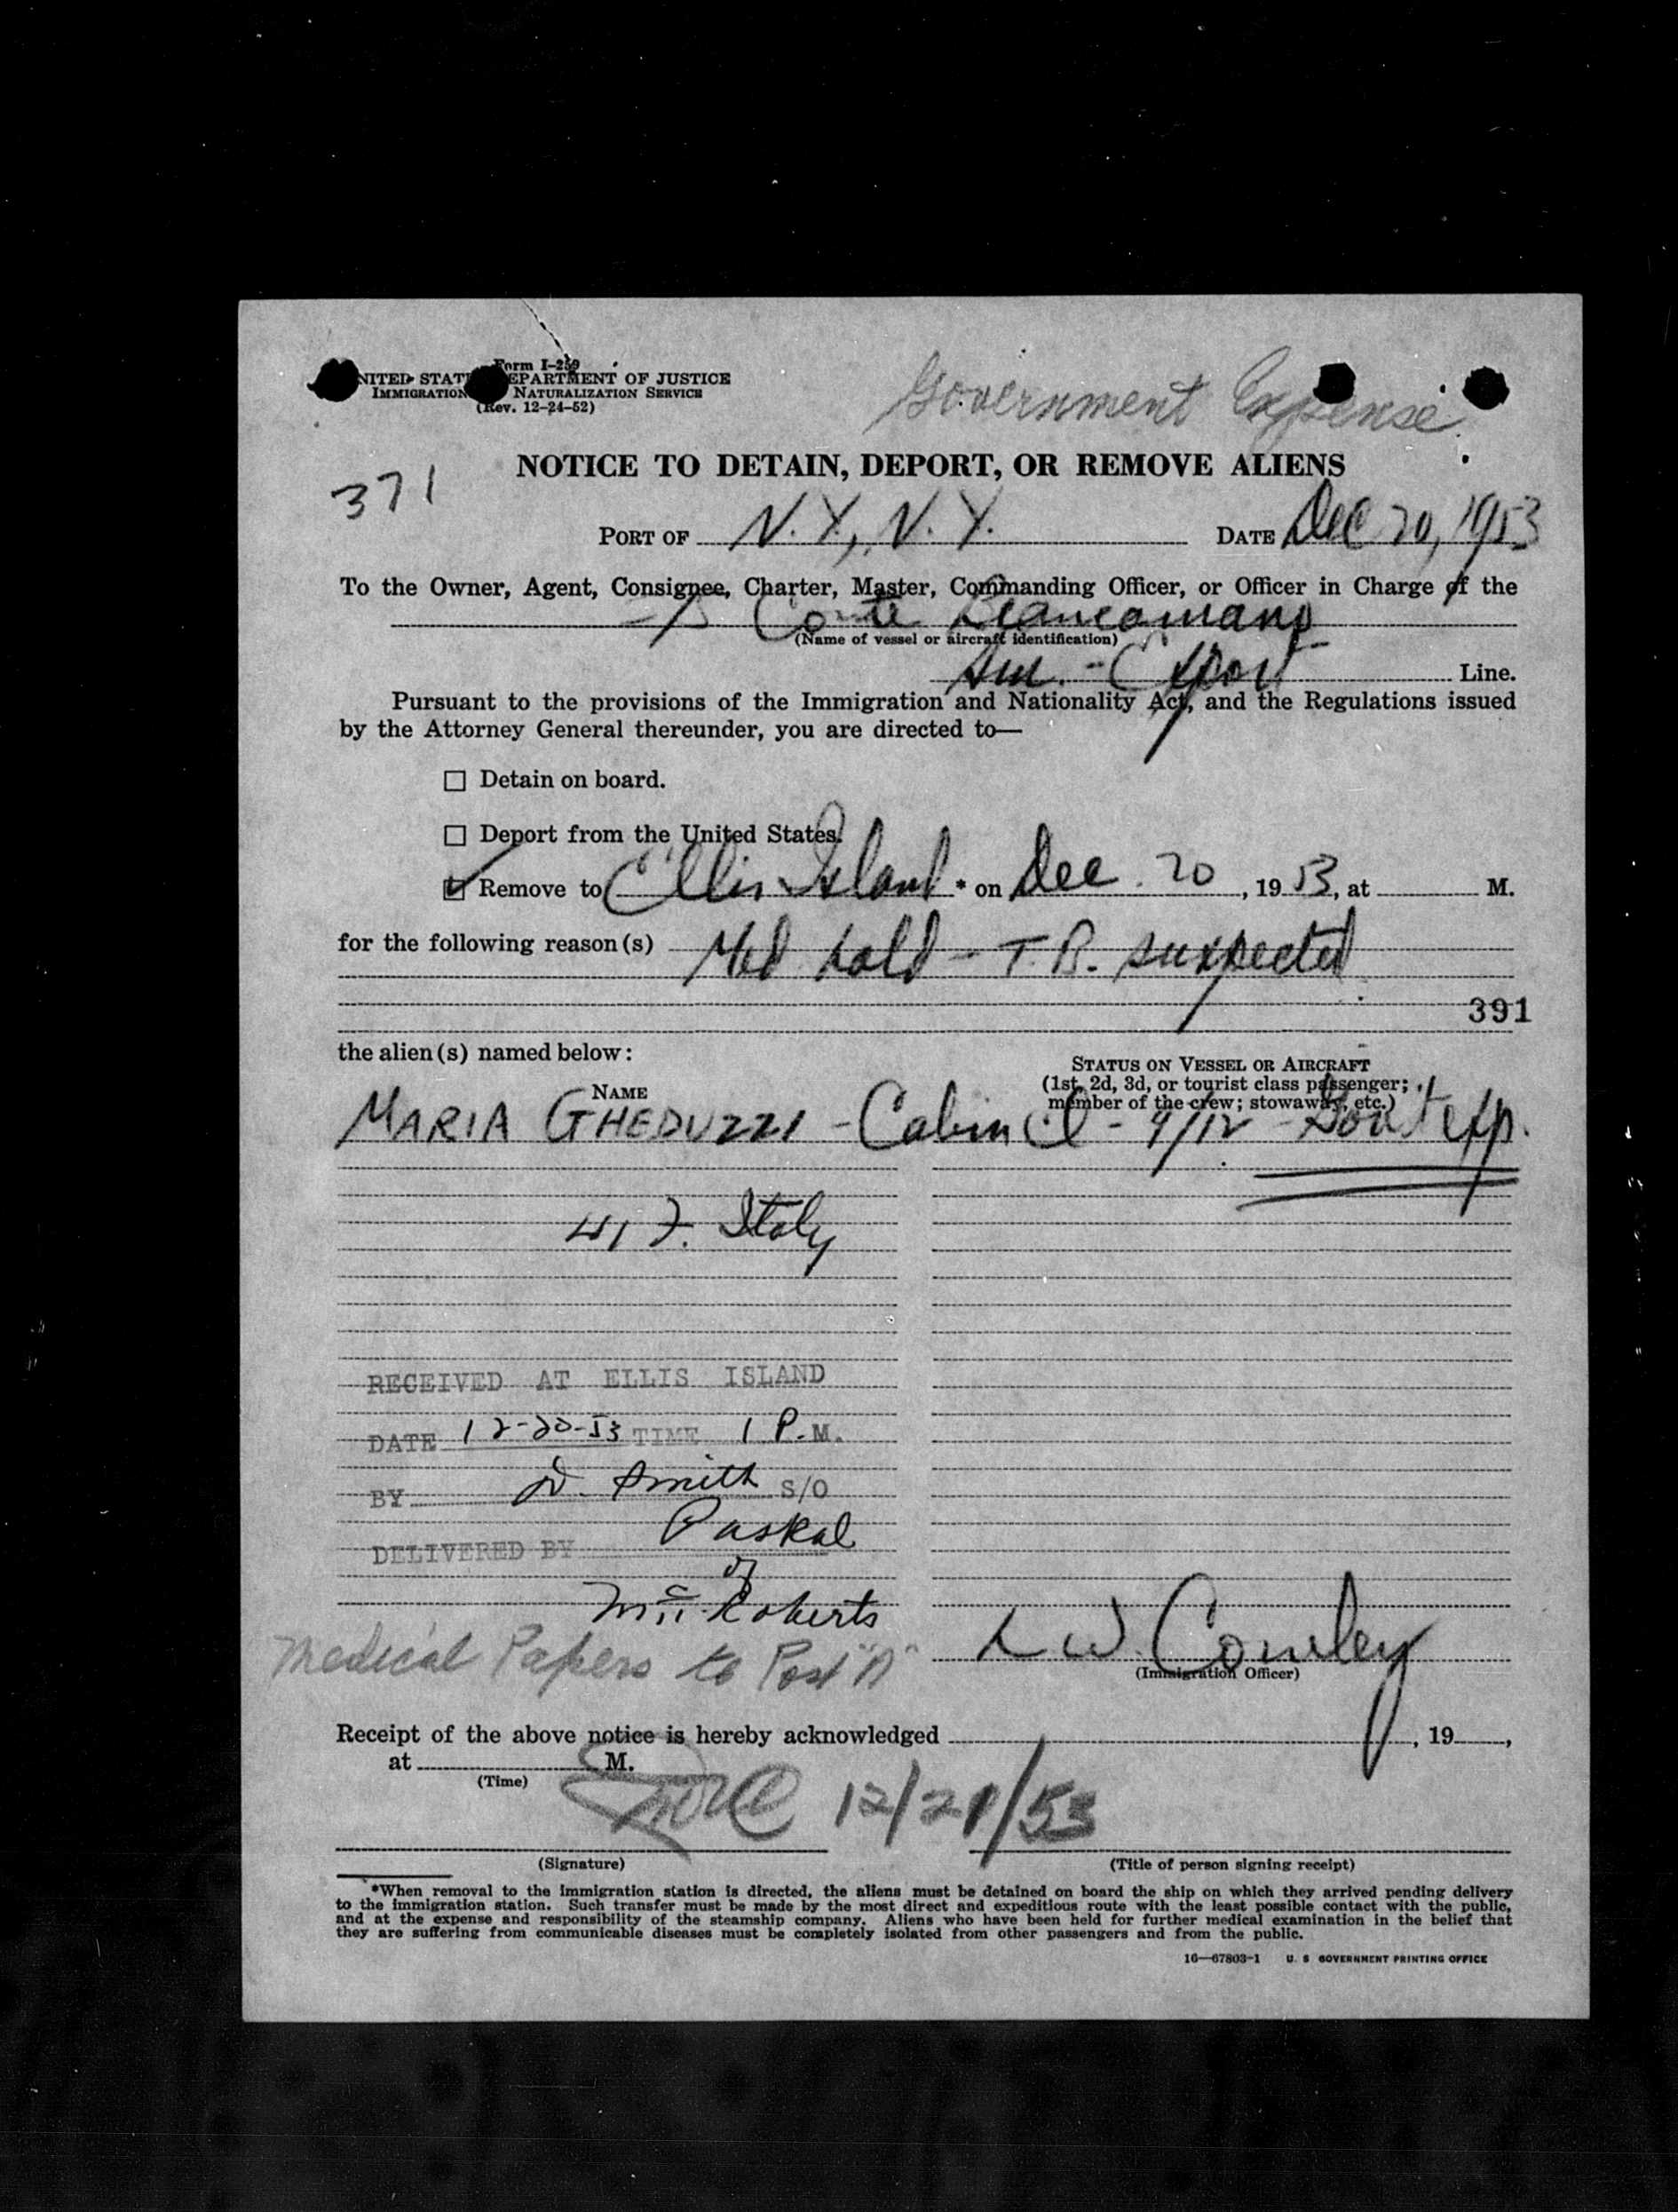 Form I-259
UNITED STATES DEPARTMENT OF JUSTICE
IMMIGRATION NATURALIZATION SERVICE
(Rev. 12-24-52)
Government Expense
371
NOTICE TO DETAIN, DEPORT, OR REMOVE ALIENS
PORT OF N.Y., N.Y. DATE Dec 20, 1953
To the Owner, Agent, Consignee, Charter, Master, Commanding Officer, or Officer in Charge of the
Conte Biancamano
(Name of vessel or aircraft identification)
Am. - Export Line.
Pursuant to the provisions of the Immigration and Nationality Act, and the Regulations issued
by the Attorney General thereunder, you are directed to—
☐ Detain on board.
☐ Deport from the United States.
☑ Remove to Ellis Island * on Dec. 20, 1953, at M.
for the following reason(s) Med hold - T.B. suspected
391
the alien(s) named below:
NAME
STATUS ON VESSEL OR AIRCRAFT
(1st, 2d, 3d, or tourist class passenger;
member of the crew; stowaway, etc.)
MARIA GHEDUZZI - Cabin Cl - 9/12 - Gov't exp.
41 F. Italy
RECEIVED AT ELLIS ISLAND
DATE 12-20-53 TIME 1 P.M.
BY D. Smith S/O
DELIVERED BY Paskal
of
Mc Roberts
Medical Papers to Post "A"
L W. Cowley
(Immigration Officer)
Receipt of the above notice is hereby acknowledged , 19 ,
at M.
(Time)
12/21/53
(Signature)
(Title of person signing receipt)
*When removal to the immigration station is directed, the aliens must be detained on board the ship on which they arrived pending delivery
to the immigration station. Such transfer must be made by the most direct and expeditious route with the least possible contact with the public,
and at the expense and responsibility of the steamship company. Aliens who have been held for further medical examination in the belief that
they are suffering from communicable diseases must be completely isolated from other passengers and from the public.
16—67803-1 U. S. GOVERNMENT PRINTING OFFICE